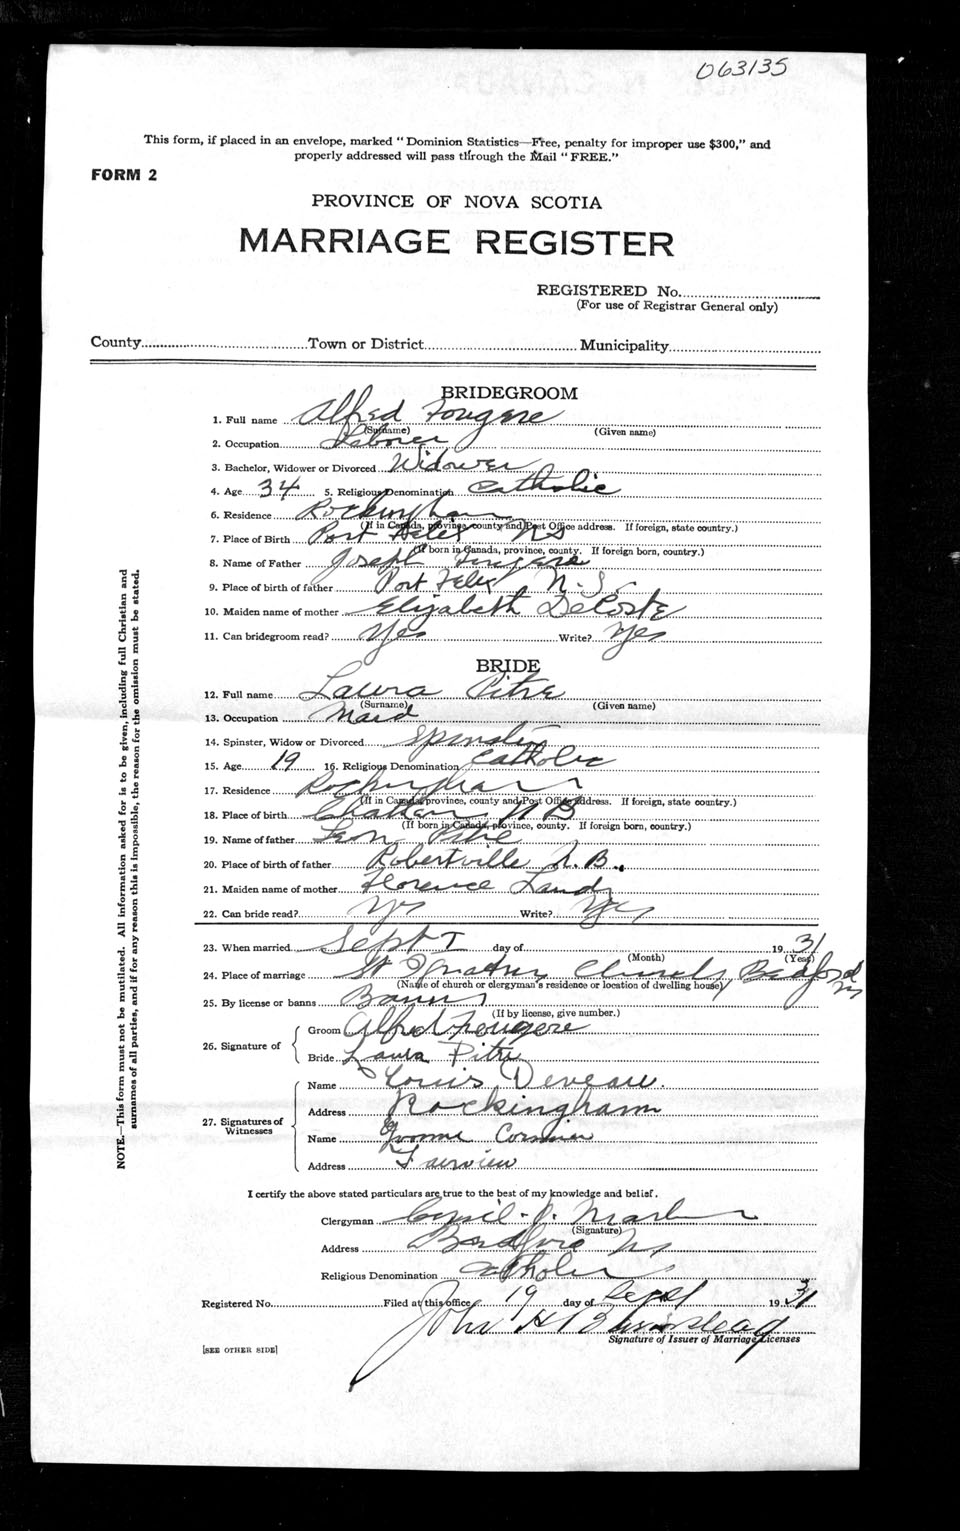 063135
This form, if placed in an envelope, marked "Dominion Statistics—Free, penalty for improper use $300," and
properly addressed will pass through the Mail "FREE."
FORM 2
PROVINCE OF NOVA SCOTIA
MARRIAGE REGISTER
REGISTERED No.
(For use of Registrar General only)
County Town or District Municipality
BRIDEGROOM
1. Full name Alfred Fougere
(Surname) (Given name)
2. Occupation Laborer
3. Bachelor, Widower or Divorced Widower
4. Age 34 5. Religious Denomination Catholic
6. Residence Rockingham
(If in Canada, province, county and Post Office address. If foreign, state country.)
7. Place of Birth Port Felix NS
(If born in Canada, province, county. If foreign born, country.)
8. Name of Father Joseph Fougere
9. Place of birth of father Port Felix N.S.
10. Maiden name of mother Elizabeth DeCoste
11. Can bridegroom read? Yes Write? Yes
BRIDE
12. Full name Laura Pitre
(Surname) (Given name)
13. Occupation Maid
14. Spinster, Widow or Divorced Spinster
15. Age 19 16. Religious Denomination Catholic
17. Residence Rockingham
(If in Canada, province, county and Post Office address. If foreign, state country.)
18. Place of birth Chatham NB
(If born in Canada, province, county. If foreign born, country.)
19. Name of father Leon Pitre
20. Place of birth of father Robertville N.B.
21. Maiden name of mother Florence Landy
22. Can bride read? Yes Write? Yes
23. When married Sept day of 1931
(Month) (Year)
24. Place of marriage St Ignatius Church, Bedford NS
(Name of church or clergyman's residence or location of dwelling house)
25. By license or banns Banns
(If by license, give number.)
26. Signature of
Groom Alfred Fougere
Bride Laura Pitre
27. Signatures of Witnesses
Name Louis Deveau.
Address Rockingham
Name Yvonne Cormier
Address Fairview
I certify the above stated particulars are true to the best of my knowledge and belief.
Clergyman Cyril J. Martin
(Signature)
Address Bedford NS
Religious Denomination Catholic
Registered No. Filed at this office 19 day of Sept 1931
John H
Signature of Issuer of Marriage Licenses
[SEE OTHER SIDE]
NOTE.—This form must not be mutilated. All information asked for is to be given, including full Christian and
surnames of all parties, and if for any reason this is impossible, the reason for the omission must be stated.